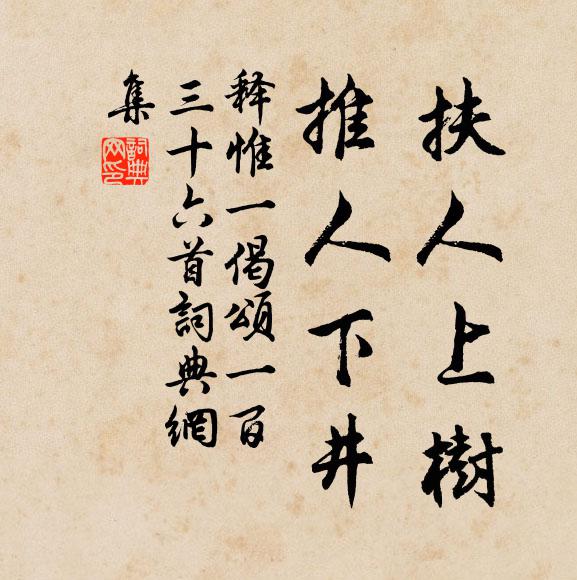 扶人上樹
推人下井
释惟一偈頌一百
三十六首詞典網
集
詞典
网印